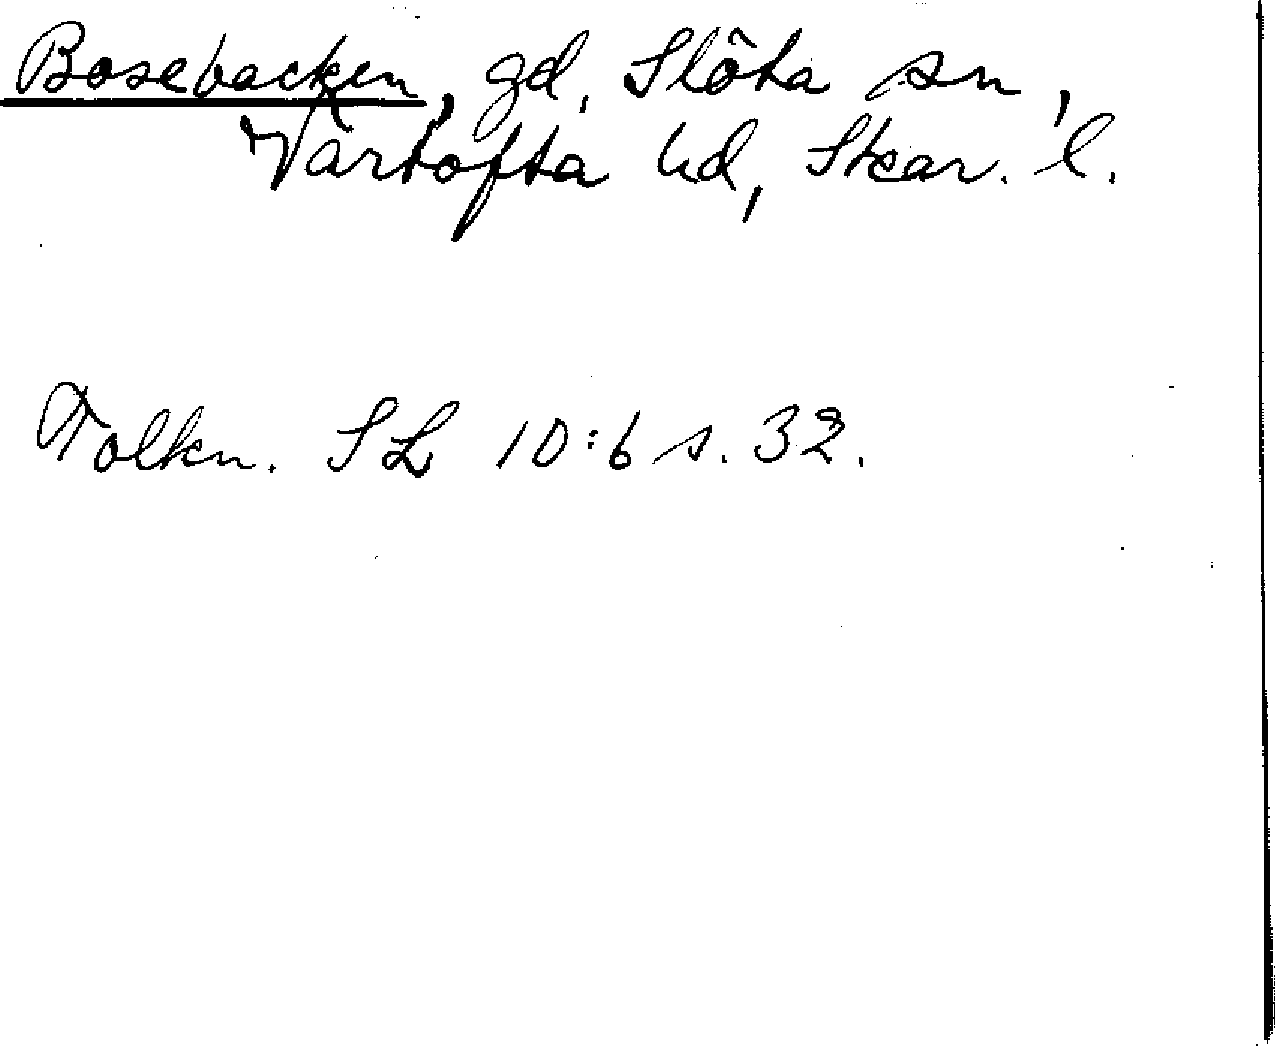 Bosebacken, gd, Slöta sn,
Vartofta hd, Skar. l.
Tolkn. SL 10:6 s. 32.